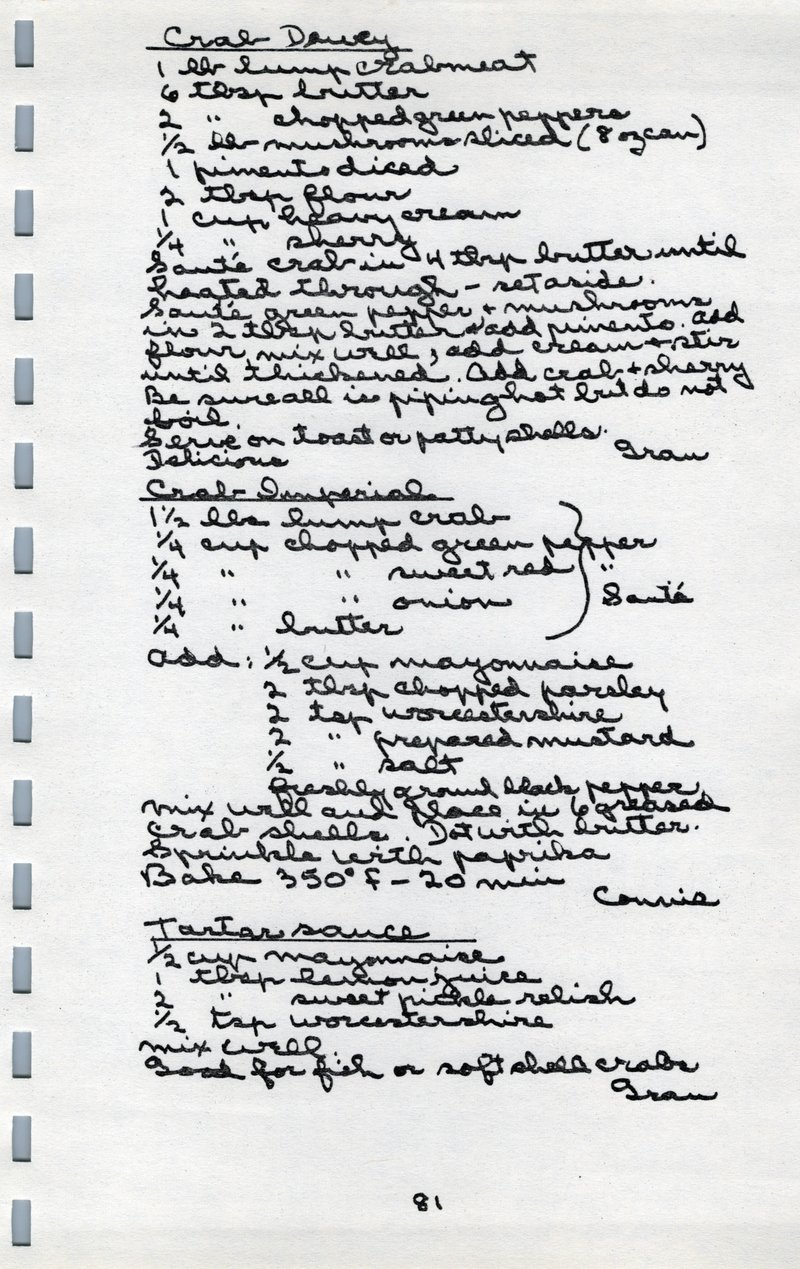 Crab Dewey
1 lb lump crabmeat
6 tbsp butter
2 " chopped green peppers
1/2 lb mushrooms sliced (8 oz can)
1 pimento diced
2 tbsp flour
1 cup heavy cream
1/4 " sherry
Sauté crab in 4 tbsp butter until
heated through - set aside.
Sauté green pepper + mushrooms
in 2 tbsp butter + add pimento. Add
flour, mix well; add cream + stir
until thickened. Add crab + sherry
Be sure all is piping hot but do not
boil.
Serve on toast or patty shells.
Delicious Gram
Crab Imperial
1 1/2 lbs lump crab
1/4 cup chopped green pepper
1/4 " " sweet red "
1/4 " " onion Sauté
1/4 " butter
Add: 1/2 cup mayonnaise
2 tbsp chopped parsley
2 tsp worcestershire
2 " prepared mustard
1/2 " salt
freshly ground black pepper
Mix well and place in 6 greased
crab shells. Dot with butter.
Sprinkle with paprika
Bake 350° F - 20 min
Connie
Tarter sauce
1/2 cup mayonnaise
1 tbsp lemon juice
2 " sweet pickle relish
1/2 tsp worcestershire
mix well.
Good for fish or soft shell crabs
Gram
81